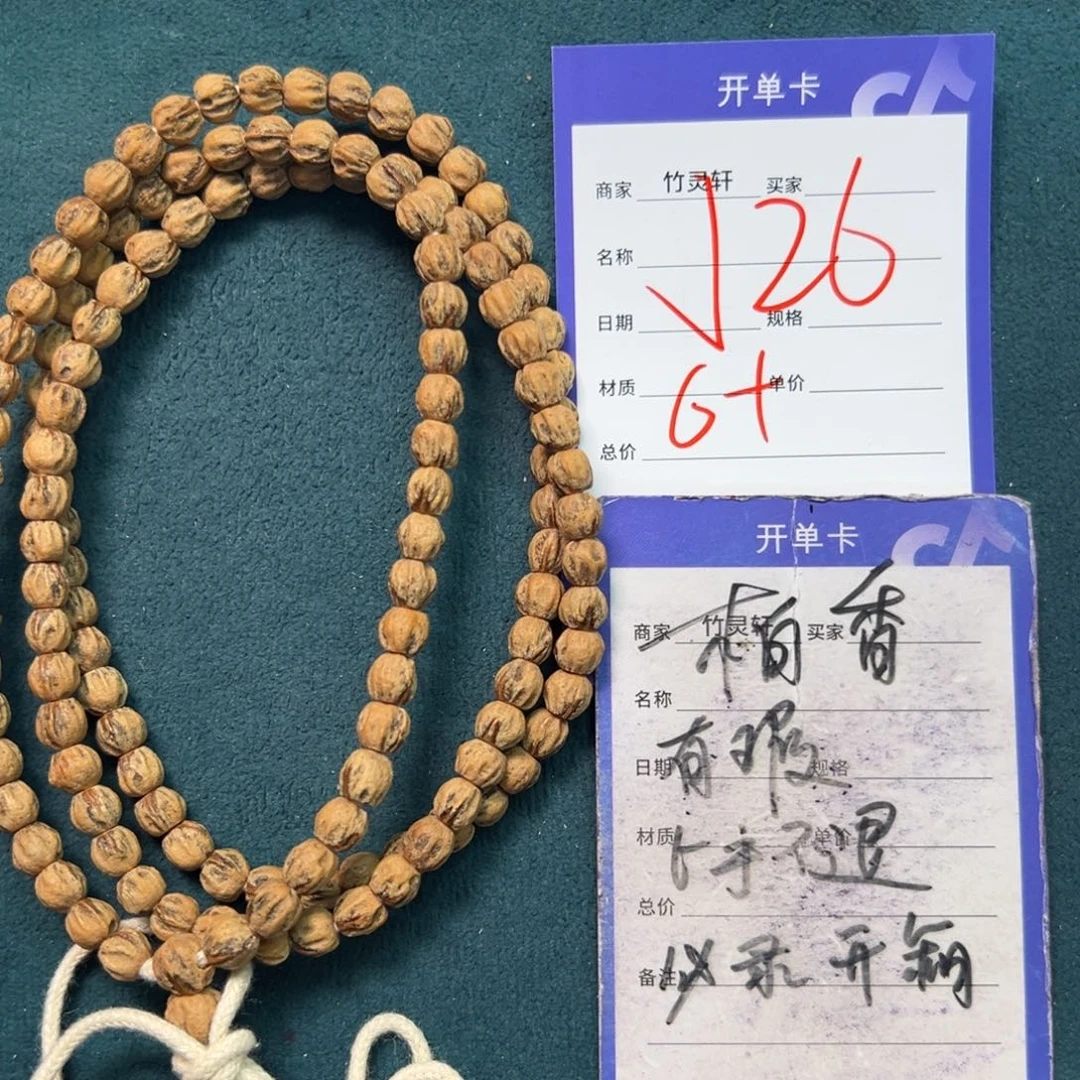 开单卡
商家 竹灵轩 买家
√26
名称
日期 规格
6+
材质 单价
总价
开单卡
商家 竹灵轩 买家
柏香
名称
有瑕
日期 规格
材质 单价
卜手不退
总价
备注
必录开箱